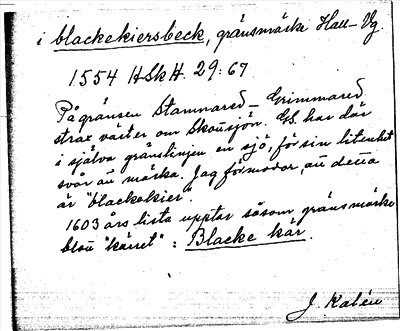 i blackekiersbeck, gränsmärke Hall-Vg.
1554 HSkH. 29:67
På gränsen Stamnared - Grimmared
strax väster om Skousjön. GS. har där
i själva gränslinjen en sjö, för sin litenhet
svår att märka. Jag förmodar, att detta
är "blackekier".
1603 års lista upptar såsom gränsmärke
blott "kärret" : Blacke kär.
J. Kalén